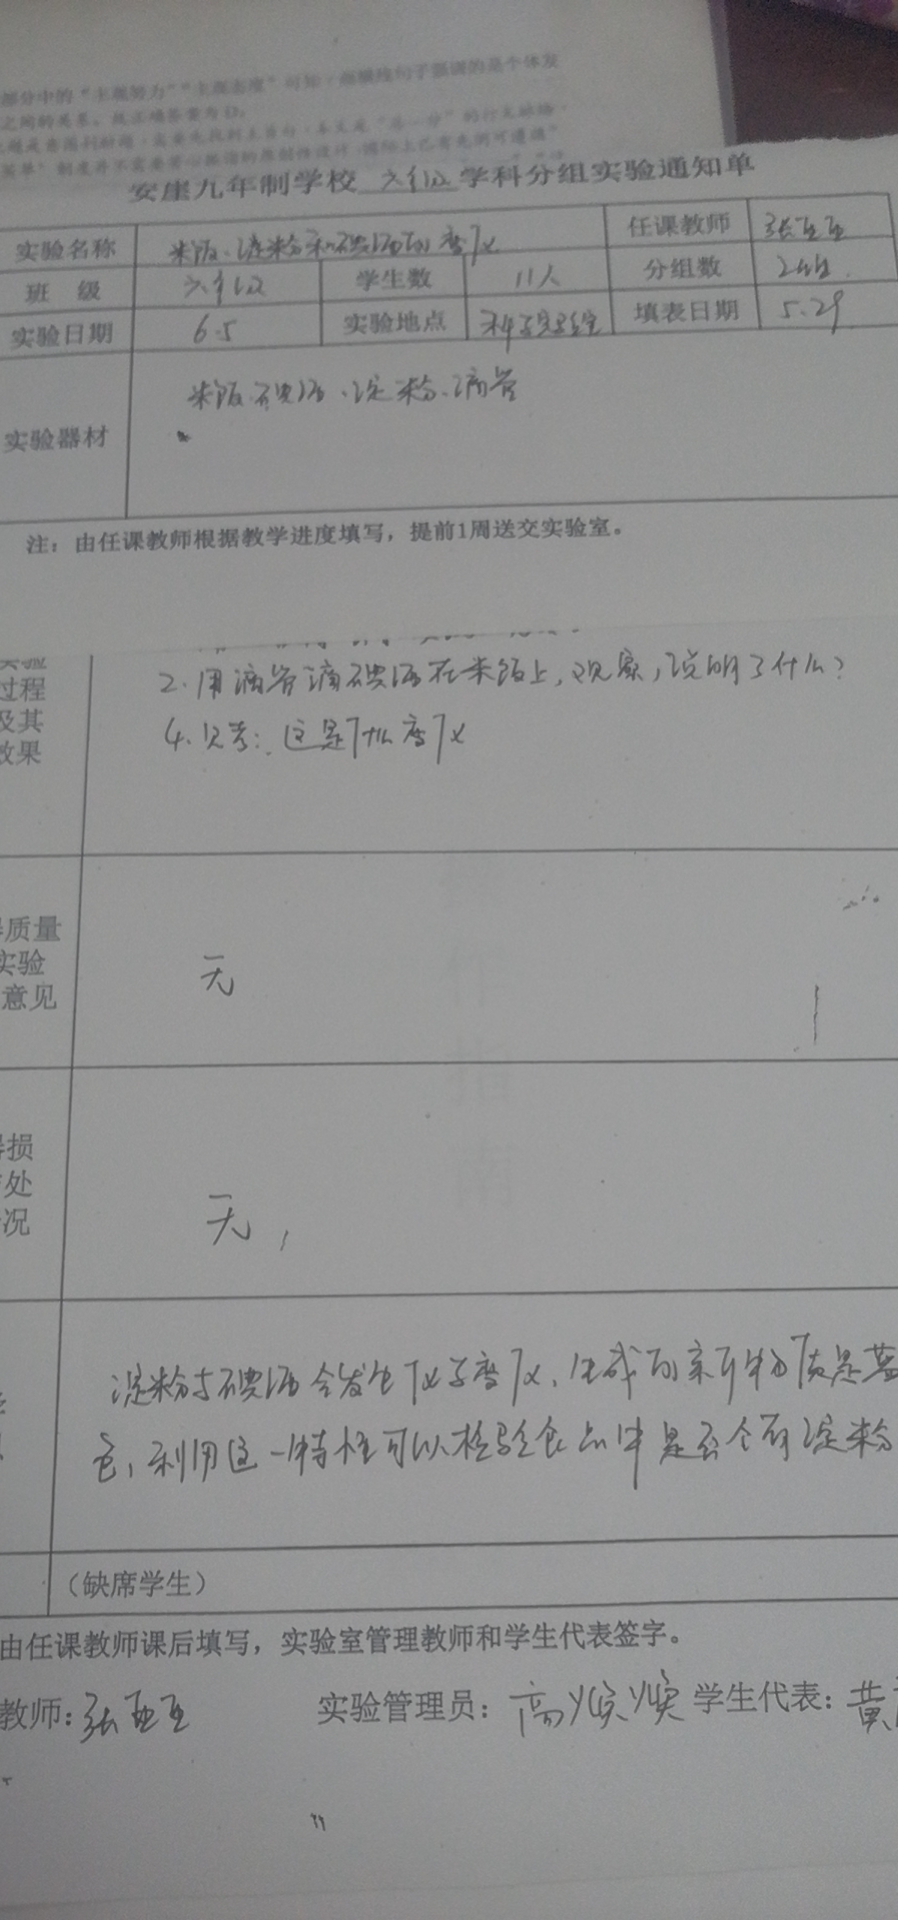 部分中的“主观努力”“主观态度”可知，画横线句子强调的是个体发
之间的关系。故正确答案为D。
安崖九年制学校 六年级 学科分组实验通知单
实验名称 米饭、淀粉和碘酒的变化 任课教师 张
班 级 六年级 学生数 11人 分组数 2组
实验日期 6.5 实验地点 科学实验室 填表日期 5.29
实验器材 米饭、碘酒、淀粉、滴管
注：由任课教师根据教学进度填写，提前1周送交实验室。
实验
过程
及其
效果
2.用滴管滴碘酒在米饭上，观察，说明了什么？
4.思考：这是什么变化
质量
实验
意见
无
损
处
况
无
淀粉与碘酒会发生化学变化，生成的新物质是蓝
色，利用这一特性可以检验食品中是否含有淀粉
（缺席学生）
由任课教师课后填写，实验室管理教师和学生代表签字。
教师：张 实验管理员：高焕焕 学生代表：黄